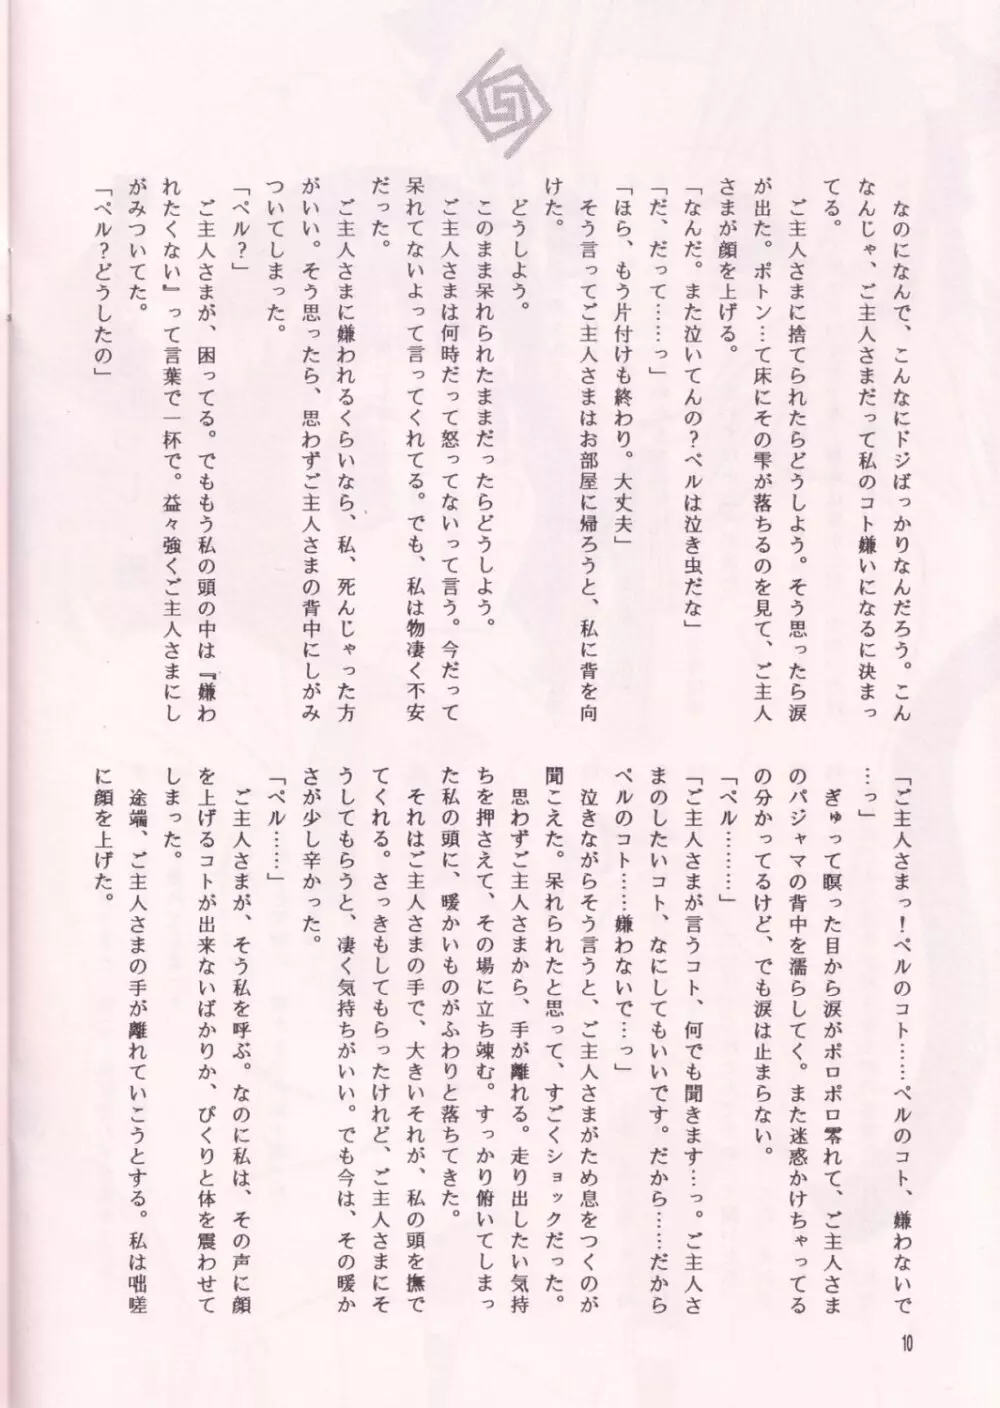 なのになんで、こんなにドジばっかりなんだろう。こん
なんじゃ、ご主人さまだって私のコト嫌いになるに決まっ
てる。
ご主人さまに捨てられたらどうしよう。そう思ったら涙
が出た。ポトン…て床にその雫が落ちるのを見て、ご主人
さまが顔を上げる。
「なんだ。また泣いてんの？ペルは泣き虫だな」
「だ、だって……っ」
「ほら、もう片付けも終わり。大丈夫」
そう言ってご主人さまはお部屋に帰ろうと、私に背を向
けた。
どうしよう。
このまま呆れられたままだったらどうしよう。
ご主人さまは何時だって怒ってないって言う。今だって
呆れてないよって言ってくれてる。でも、私は物凄く不安
だった。
ご主人さまに嫌われるくらいなら、私、死んじゃった方
がいい。そう思ったら、思わずご主人さまの背中にしがみ
ついてしまった。
「ペル？」
ご主人さまが、困ってる。でももう私の頭の中は『嫌わ
れたくない』って言葉で一杯で。益々強くご主人さまにし
がみついてた。
「ペル？どうしたの」
「ご主人さまっ！ペルのコト……ペルのコト、嫌わないで
…っ」
ぎゅって瞑った目から涙がポロポロ零れて、ご主人さま
のパジャマの背中を濡らしてく。また迷惑かけちゃってる
の分かってるけど、でも涙は止まらない。
「ペル………」
「ご主人さまが言うコト、何でも聞きます…っ。ご主人さ
まのしたいコト、なにしてもいいです。だから……だから
ペルのコト……嫌わないで…っ」
泣きながらそう言うと、ご主人さまがため息をつくのが
聞こえた。呆れられたと思って、すごくショックだった。
思わずご主人さまから、手が離れる。走り出したい気持
ちを押さえて、その場に立ち竦む。すっかり俯いてしまっ
た私の頭に、暖かいものがふわりと落ちてきた。
それはご主人さまの手で、大きいそれが、私の頭を撫で
てくれる。さっきもしてもらったけれど、ご主人さまにそ
うしてもらうと、凄く気持ちがいい。でも今は、その暖か
さが少し辛かった。
「ペル……」
ご主人さまが、そう私を呼ぶ。なのに私は、その声に顔
を上げるコトが出来ないばかりか、びくりと体を震わせて
しまった。
途端、ご主人さまの手が離れていこうとする。私は咄嗟
に顔を上げた。
10